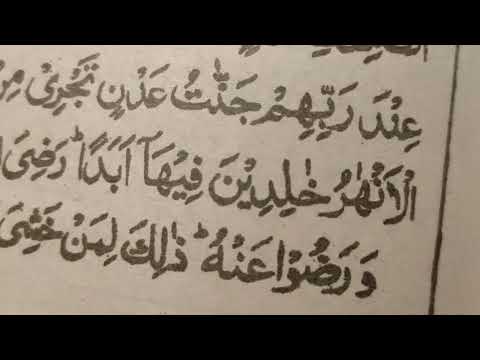 عِنْدَ رَبِّهِمْ جَنّٰتُ عَدْنٍ تَجْرِیْ مِنْ
الْاَنْهٰرُ خٰلِدِیْنَ فِیْهَاۤ اَبَدًا ؕ رَضِیَ
وَ رَضُوْا عَنْهُ ؕ ذٰلِكَ لِمَنْ خَشِیَ